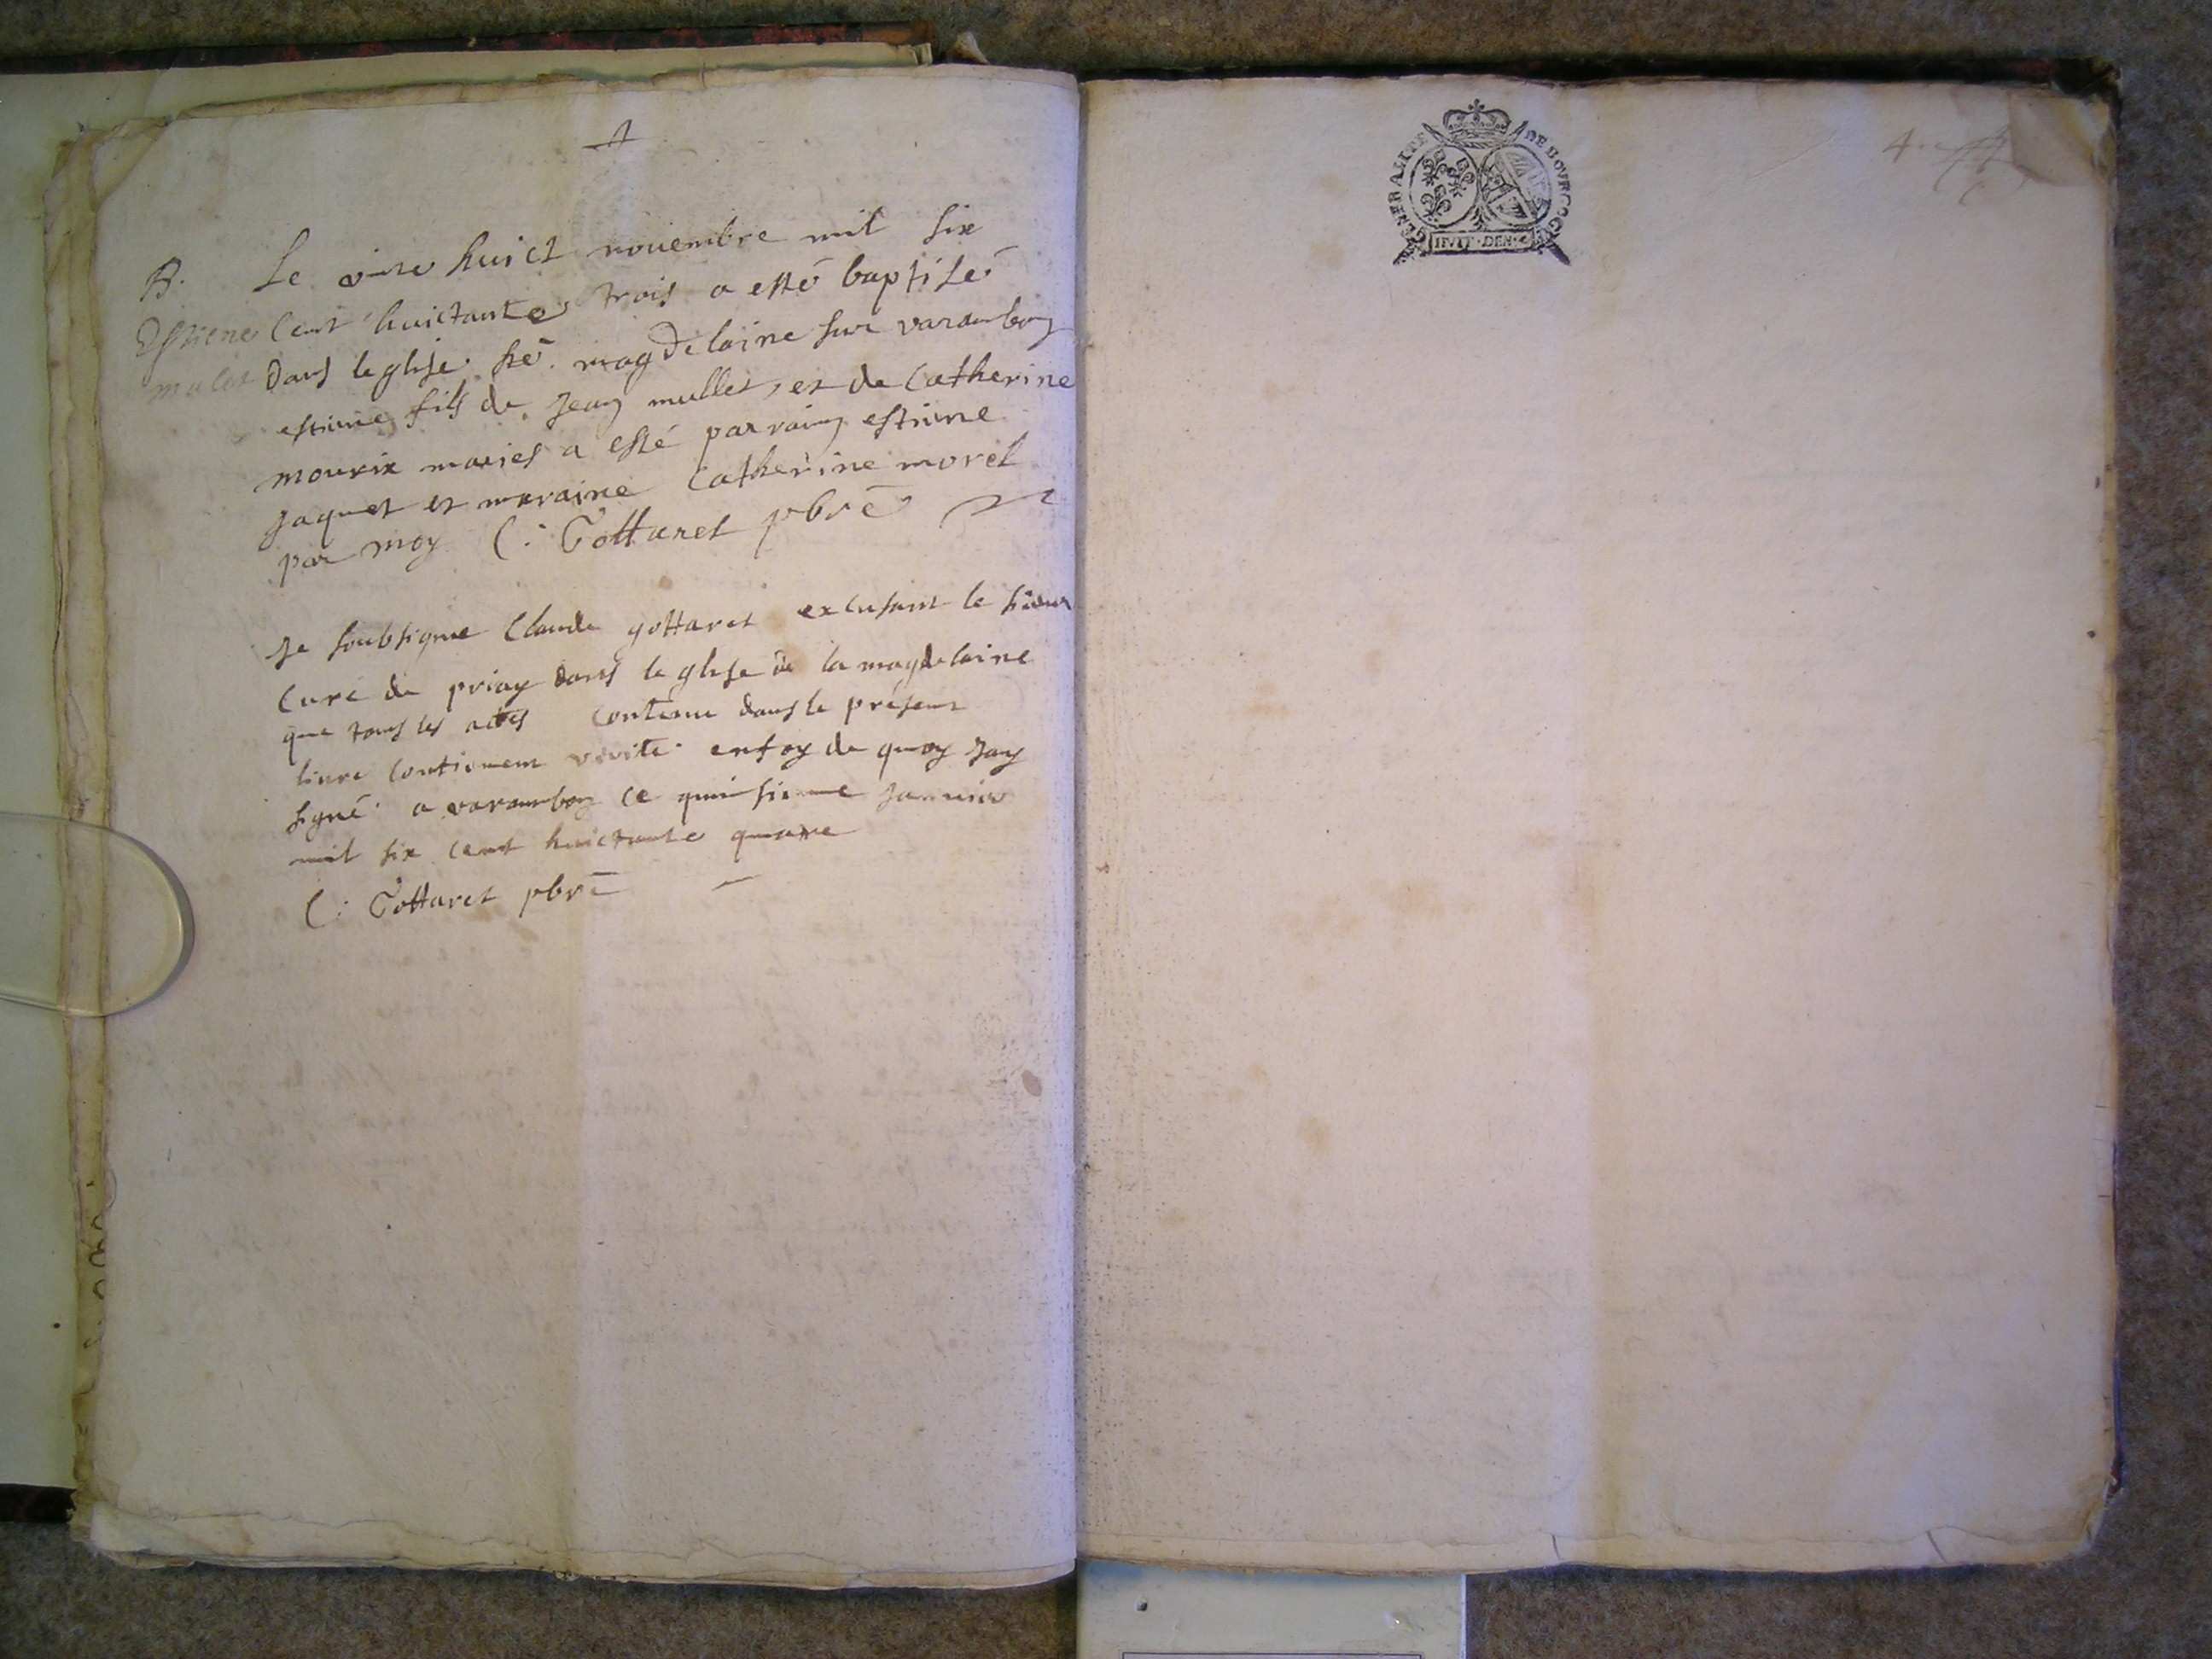 B.
Estiene
mulet
Le vinte huict novembre mil six
cent huictante trois a esté baptisé
dans leglise ste magdelaine sur varambon
estiene fils de Jean mullet, et de Catherine
mourix mariés a esté parrain estiene
Jaquet et maraine Catherine morel
par moy C: Gottaret pbrē
Je soubsigne Claude gottaret excusant le sieur
Curé de priay dans leglise de la magdelaine
que tous les actes contenu dans le present
livre contienent verité en foy de quoy Jay
signé a varambon ce quinsieme Janvier
mil six cent huictante quatre
C: Gottaret pbrē
GENERALITE DE BOURGOGNE
HVIT·DEN·
4.